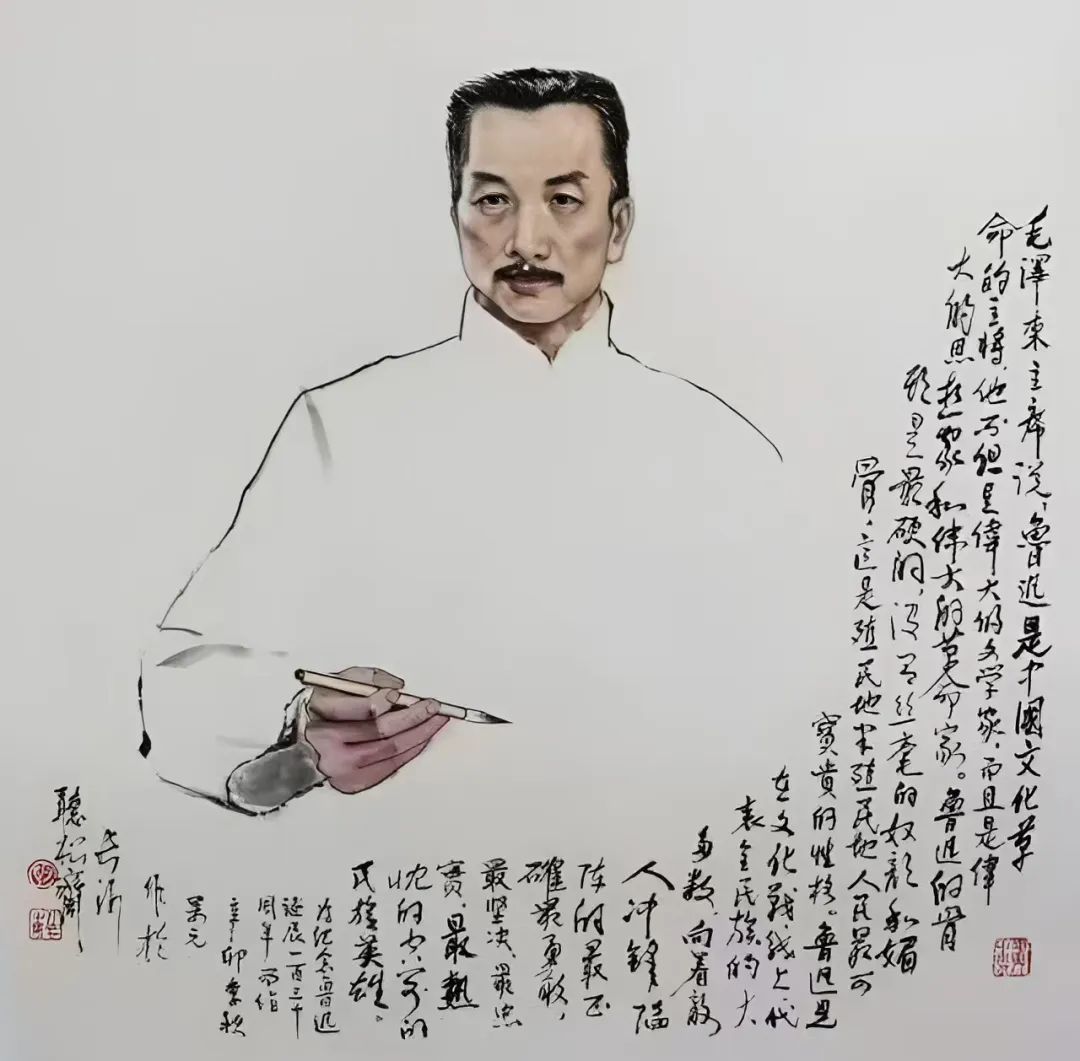 毛澤东主席说，魯迅是中國文化革
命的主將，他不但是偉大的文学家，而且是偉
大的思想家和伟大的革命家。魯迅的骨
頭是最硬的，没有丝毫的奴颜和媚
骨，这是殖民地半殖民地人民最可
寳貴的性格。魯迅是
在文化戰线上代
表全民族的大
多数，向着敵
人冲鋒陷
阵的最正
確、最勇敢，
最坚决、最忠
實、最熱
忱的空前的
民族英雄。
为纪念魯迅
诞辰一百三十
周年而作
辛卯季秋
吴元
作於
聽松